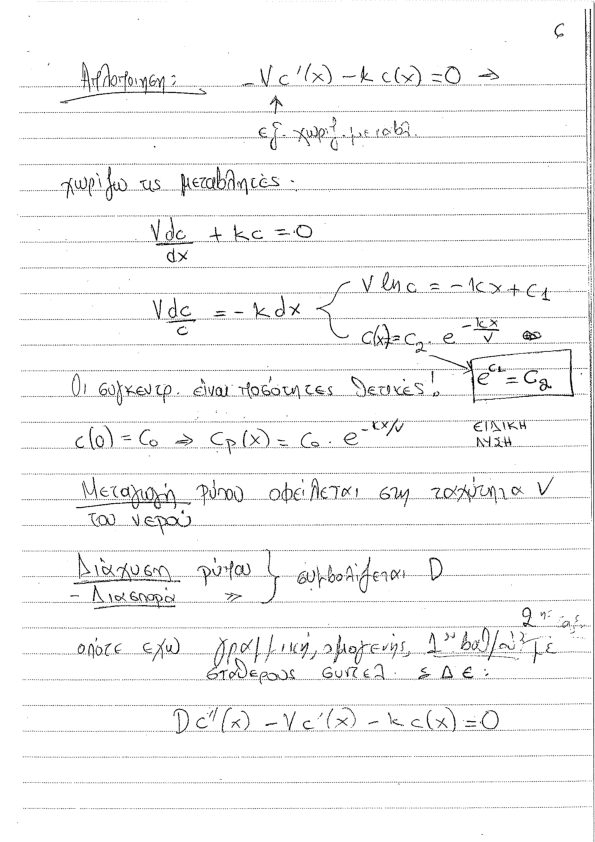 6
Απλοποίηση: -Vc'(x) - kc(x) = 0 →
↑
εξ. χωριζ. μεταβλ.
χωρίζω τις μεταβλητές.
Vdc/dx + kc = 0
Vdc/c = -kdx
V ln c = -kx + c1
c(x) = c2 . e^{-kx/V}
e^{c1} = c2
Οι συγκεντρ. είναι ποσότητες θετικές!
c(0) = Co ⇒ Cp(x) = Co . e^{-kx/V}
ΕΙΔΙΚΗ
ΛΥΣΗ
Μεταγωγή ρύπου οφείλεται στη ταχύτητα V
του νερού
Διάχυση ρύπου } συμβολίζεται D
- Διασπορά »
2ης
οπότε έχω γραμμική, ομογενής, 1ου με
σταθερούς συντελ. ΣΔΕ:
Dc''(x) - Vc'(x) - kc(x) = 0